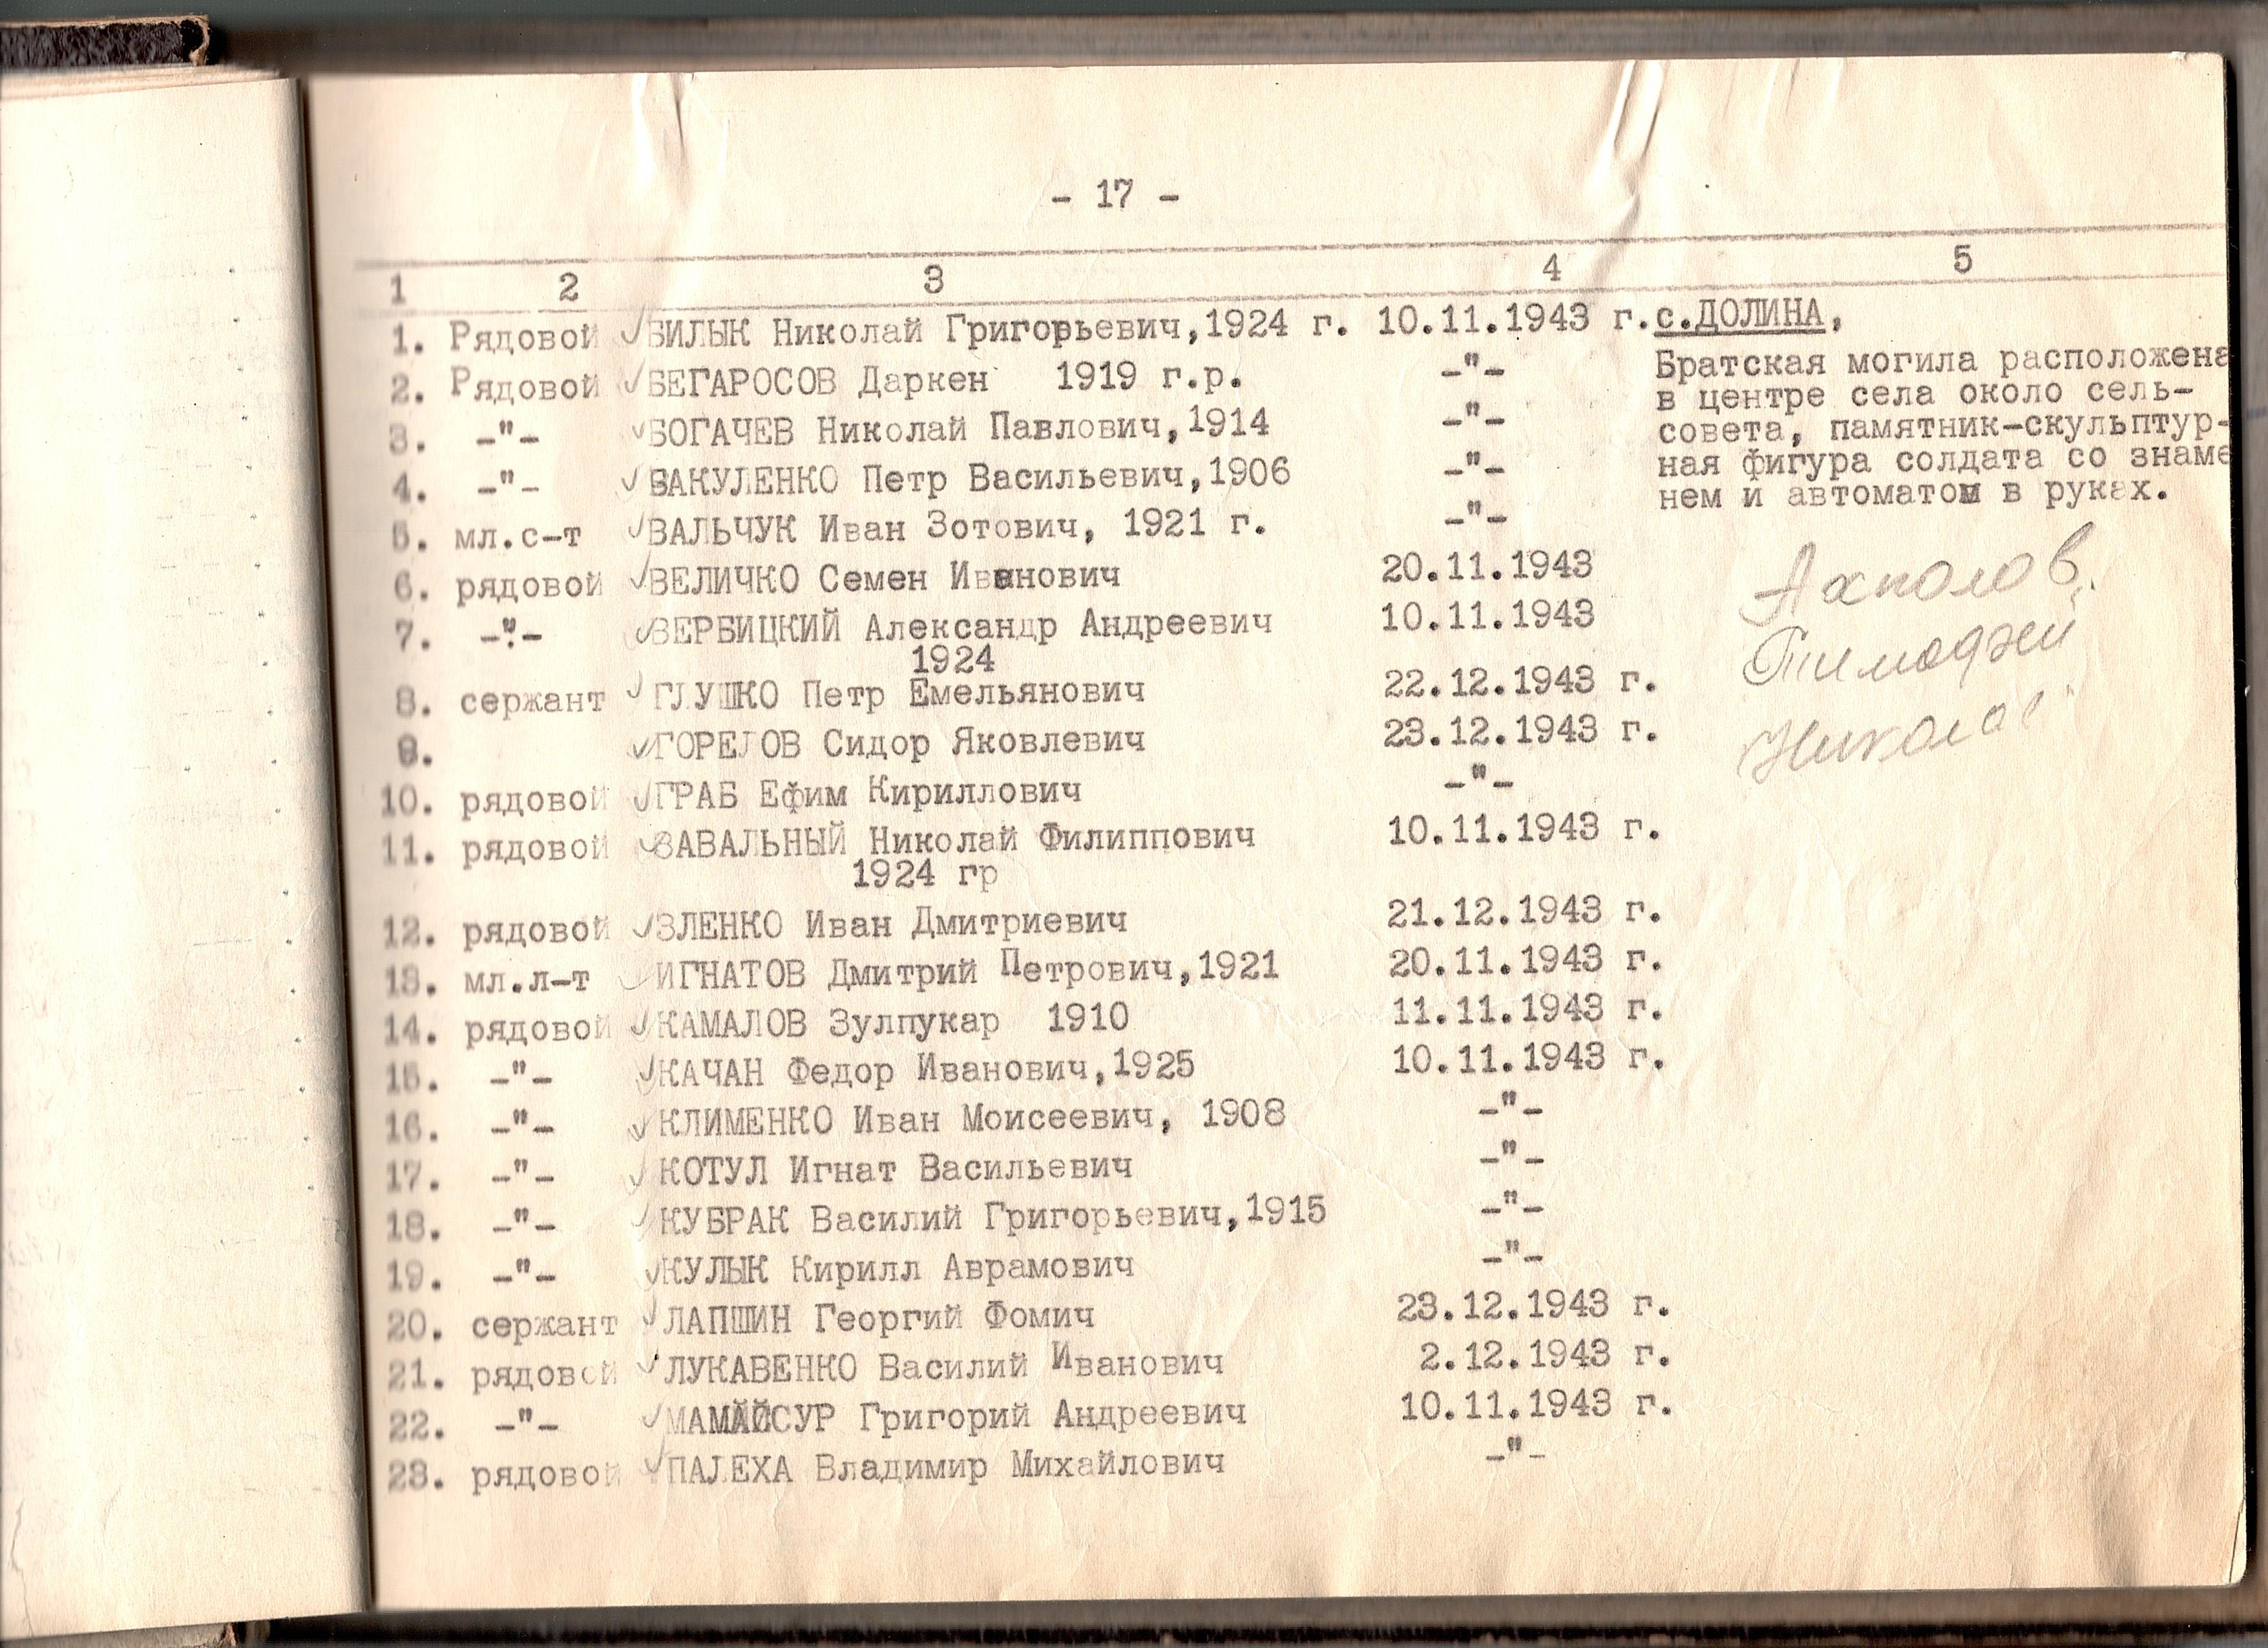 - 17 -
1 2 3 4 5
1. Рядовой БИЛЫК Николай Григорьевич,1924 г. 10.11.1943 г. с.ДОЛИНА,
2. Рядовой БЕГАРОСОВ Даркен 1919 г.р. -"- Братская могила расположена
в центре села около сель-
3. -"- БОГАЧЕВ Николай Павлович,1914 -"- совета, памятник-скульптур-
4. -"- БАКУЛЕНКО Петр Васильевич,1906 -"- ная фигура солдата со знаме
5. мл.с-т ВАЛЬЧУК Иван Зотович, 1921 г. -"- нем и автоматом в руках.
6. рядовой ВЕЛИЧКО Семен Иванович 20.11.1943
7. -"- ВЕРБИЦКИЙ Александр Андреевич 10.11.1943
1924
8. сержант ГЛУШКО Петр Емельянович 22.12.1943 г.
9. ГОРЕЛОВ Сидор Яковлевич 23.12.1943 г.
10. рядовой ГРАБ Ефим Кириллович -"-
11. рядовой ЗАВАЛЬНЫЙ Николай Филиппович 10.11.1943 г.
1924 гр
12. рядовой ЗЛЕНКО Иван Дмитриевич 21.12.1943 г.
13. мл.л-т ИГНАТОВ Дмитрий Петрович,1921 20.11.1943 г.
14. рядовой КАМАЛОВ Зулпукар 1910 11.11.1943 г.
15. -"- КАЧАН Федор Иванович,1925 10.11.1943 г.
16. -"- КЛИМЕНКО Иван Моисеевич, 1908 -"-
17. -"- КОТУЛ Игнат Васильевич -"-
18. -"- КУБРАК Василий Григорьевич,1915 -"-
19. -"- КУЛЫК Кирилл Аврамович -"-
20. сержант ЛАПШИН Георгий Фомич 23.12.1943 г.
21. рядовой ЛУКАВЕНКО Василий Иванович 2.12.1943 г.
22. -"- Григорий Андреевич 10.11.1943 г.
23. рядовой ПАЛЕХА Владимир Михайлович -"-